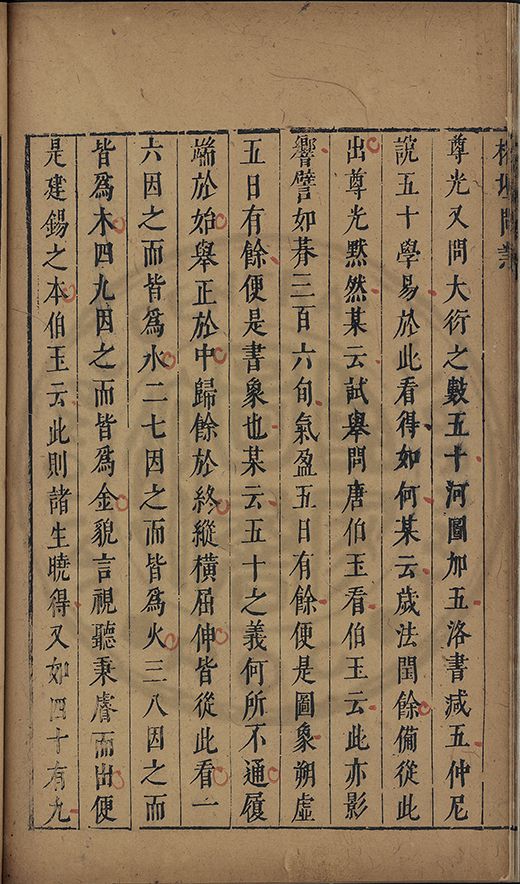 榕壇問業
尊光又問大衍之數五十河圖加五洛書减五仲尼
說五十學易於此看得如何某云歲法閏餘備從此
出尊光黙然某云試舉問唐伯玉看伯玉云此亦影
響譬如朞三百六旬氣盈五日有餘便是圖象朔虛
五日有餘便是書象也某云五十之義何所不通履
端於始舉正於中歸餘於終縱橫屈伸皆從此看一
六因之而皆爲水二七因之而皆爲火三八因之而
皆爲木四九因之而皆爲金貌言視聽秉睿而出便
是建錫之本伯玉云此則諸生曉得又如四十有九